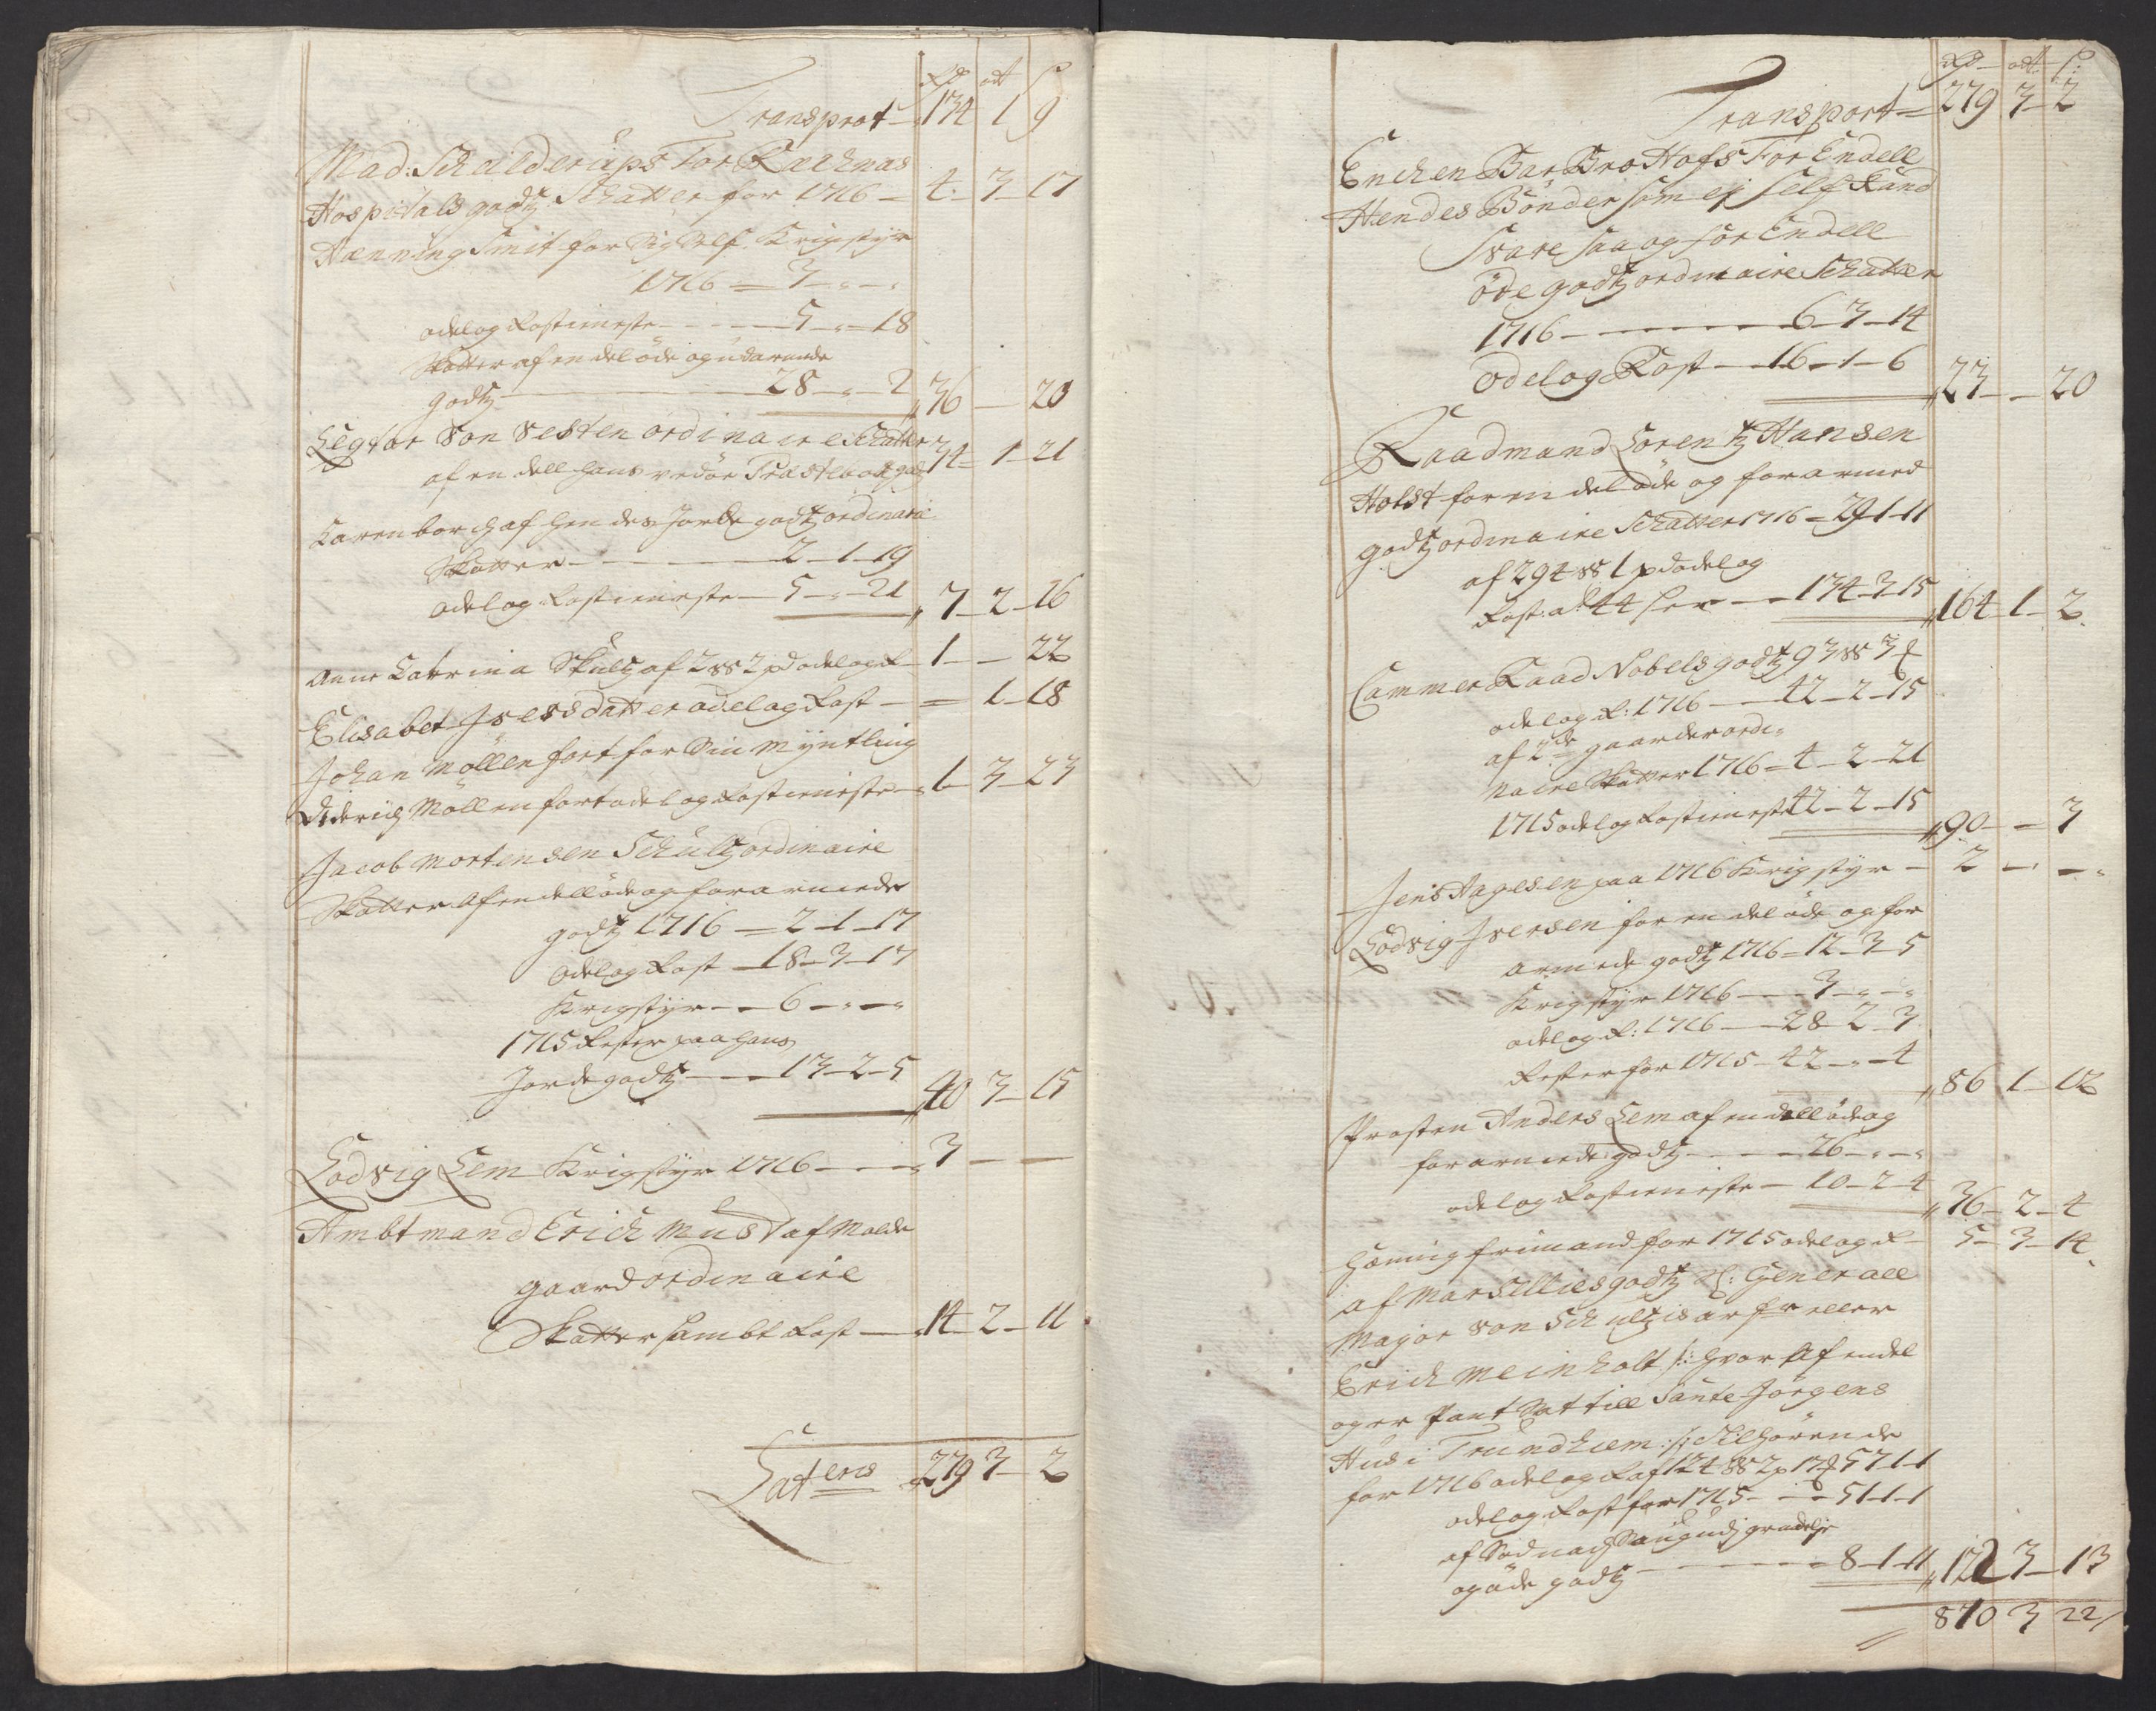 Rd ort ß
Transport 134 1 9
Mad: Schilderups For Rachnas
Hospitals godtz Schatter for 1716 = 4 - 3 - 17
Henning Smit for Sig Self Krigstyr
1716 = 3 - " - "
odel og Rostieniste - 5 - " - 18
Skatter af en del öde og udarmede
godtz - 28 - " - 2 36 - 20
Legtor Von Vesten ordinaire Schatter
af en dell hans vedör Præstebordgodtz 34 - 1 - 21
Karen borch af hendes Jorde godtz ordinaire
Skatter - 2 - 1 - 19
odel og Rostieniste - 5 - " - 21 7 - 2 - 16
Anne Catrina Skultz af 2 W 2 pd odel og R - 1 - - 22
Elisabet Jversdatter odel og Rost - = 1 - 18
Johan Möllenfort for Sin Myntling
Diderich Möllenfort odel og Rostieniste - 1 - 3 - 23
Jacob Mortensen Schultz ordinaire
Skatter Af en dell öde og forarmede
godtz 1716 = 2 - 1 - 17
odel og Rost - 18 - 3 - 17
Krigstyr - 6 - " - "
1715 Rester paa hans
Jordegodtz - 13 - 2 - 5 40 3 - 15
Lodvig Lem Krigstyr 1716 - 3 - -
Ambtmand Erich Must af Molde
gaard ordinaire
Skatter sambt Rost - 14 - 2 - 11
Lateris 279 3 - 2
Rd ort ß:
Transport = 279 3 - 2
Enchen Bar Bro Hofs For Endell
Hendes Bönder som ej self kand
Svare saa og for Endell
öde godtz ordinaire Schatter
1716 - 6 - 3 - 14
odel og Rost - 16 - 1 - 6 23 - - 20
Raadmand Lorentz Hansen
Holst for en del öde og forarmed
godtz ordinaire Schatter 1716 = 29 - 1 - 11
af 294 W 1 pd odel og
Rost: a 44 ser - 134 - 3 - 15 164 - 1 - 2
Cammer Raad Nobels godtz 93 W 3 f
odel og R: 1716 - 42 - 2 - 15
af 2de gaarder ordi-
naire Skatter 1716 = 4 - 2 - 21
1715 odel og Rostieniste 42 - 2 - 15 90 - - 3
Jens Hagesen paa 1716 Krigstyr - 2 - -
Lodvig Jversen for en del öde og for
armede godtz 1716 = 12 - 3 - 5
Krigstyr 1716 - 3 - " - "
odel og R: 1716 - 28 - 2 - 3
Rester for 1715 - 42 - " - 4
86 1 - 12
Prosten Anders Lem af en dell öde og
forarmede godtz - 26 - " - "
odel og Rostieniste - 10 - 2 - 4 36 - 2 - 4
Henning frimand for 1715 odel og R - 5 - 3 - 14
af Marsellies godtz Hr: Generall
Major von Schultzis arfr eller
Erich Meinholt /: hvor Af en del
og er Pant Sat till Sante Jörgens
Hus i Trundhiem :/ Tilhörende
for 1716 odel og R af 124 W 2 p 17 f 57 1 - 1
odel og Rost for 1715 - 51 - 1 - 1
og öde godtz - 8 - 1 - 11 122 3 - 13
870 3 22